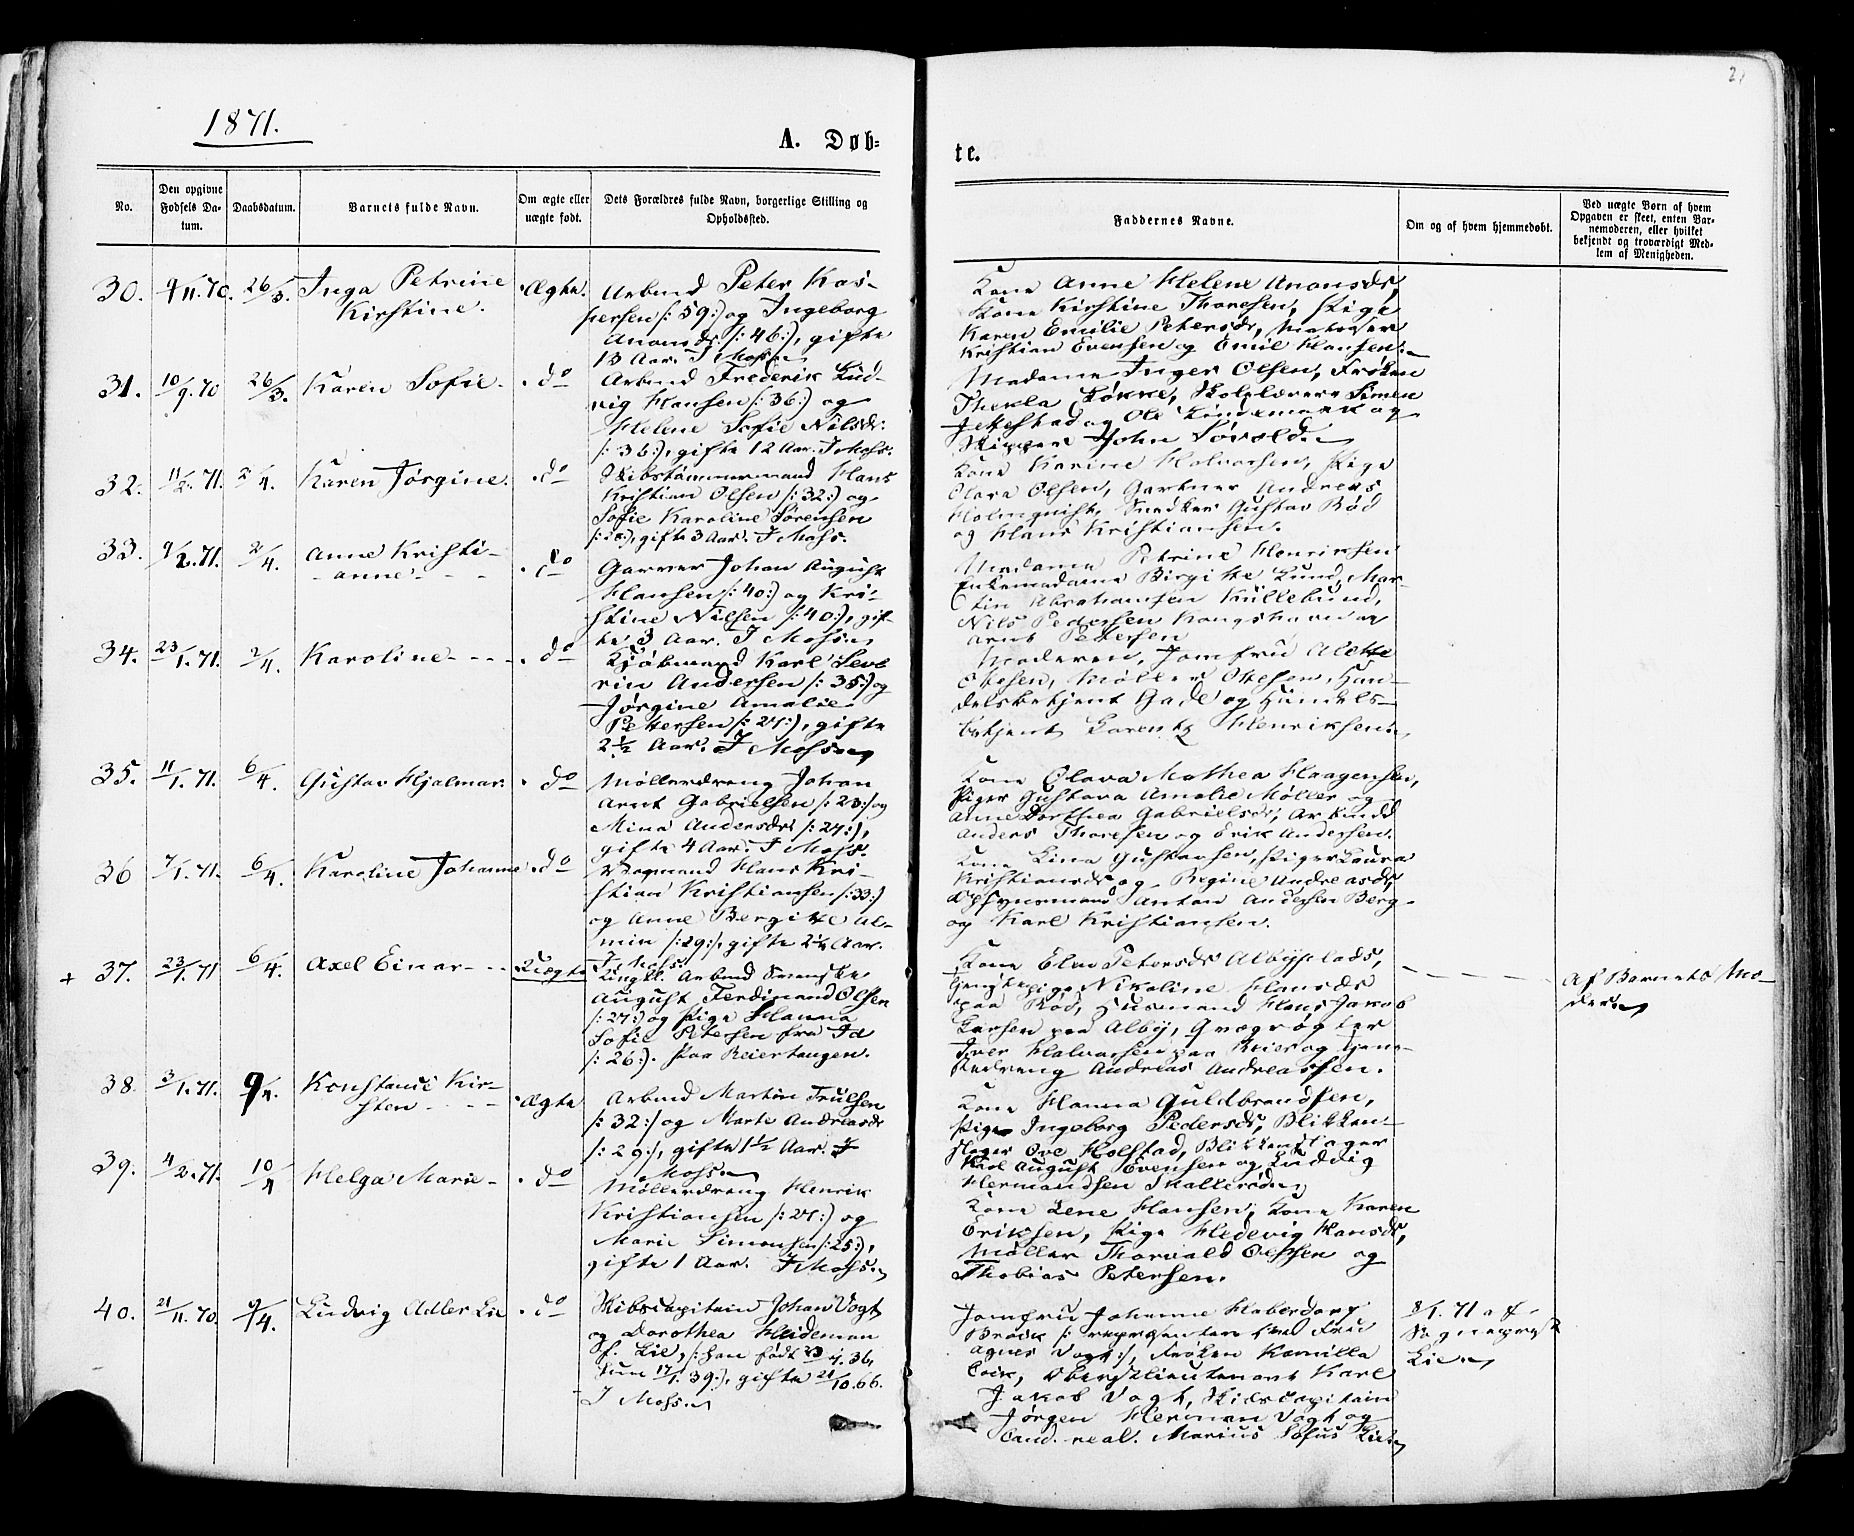 1871.
21
A. Døb-
te.
No.
Den opgivne Fødsels Da-
tum.
Daabsdatum.
Barnets fulde Navn.
Om ægte eller
uægte født.
Dets Forældres fulde Navn, borgerlige Stilling og
Opholdssted.
Faddernes Navne.
Om og af hvem hjemmedøbt.
Ved uægte Børn af hvem
Opgaven er skeet, enten Bar-
nemoderen, eller hvilket
bekjendt og troværdigt Med-
lem af Menigheden.
30. 9/11.70. 26/3. Inga Petrine
Kirstine.
Ægte.
Arbmd Peter Kas-
persen /:59:/ og Ingeborg
Anonsdr /:46:/, gifte
13 Aar. I Moss
Kone Anne Helene Anonsdr,
Kone Kirstine Thoresen, Pige
Karen Emilie Petersdr, Matroser
Kristian Evensen og Emil Hansen.
31. 10/9.70 26/3. Karen Sofie do
Arbmd Frederik Lud-
vig Hansen /:36:/ og
Helene Sofie Nilsdr
/:36:/, gifte 12 Aar. I Moss.
Madame Inger Olsen, Frøken
Thekla Løkke, Skolelærere Simen
Jelkestad og Ole Lindemark og
Skipper John Sørvold
32. 11/2.71. 2/4. Karen Jørgine. do
Skibstømmermand Hans
Kristian Olsen /:32:/ og
Sofie Karoline Sørensen
gifte 3 Aar. I Moss.
Kone Karine Halvorsen, Pige
Olava Olsen, Gartner Andreas
Holmquist, Snedker Gustav Rød
og Hans Kristiansen.
33. 9/2.71. 2/4. Anne Kristi-
anne do
Garver Johan August
Hansen /:40:/ og Kri-
stine Nilsen /:40:/, gif-
te 3 Aar. I Moss
Madame Petrine Henriksen
Enkemadame Birgitte Lund, Mar-
tin Abrahamsen Kullebund,
Nils Pedersen Kongshavn og
Arnt Pedersen
34. 23/1.71. 2/4. Karoline do
Kjøbmand Karl Seve
rin Andersen /:35:/ og
Jørgine Amalie
Pettersen /:27:/, gifte
2½ Aar. I Moss
Moderen, Jomfru Alette
Ottesen, Møller Ottesen, Han-
delsbetjent Gade og Handels-
betjent Lorentz Henriksen.
35. 11/1.71. 6/4. Gustav Hjalmar. do
Møllerdreng Johan
Arnt Gabrielsen /:23:/ og
Mina Andersdr /:27:/,
gifte 4 Aar. I Moss.
Kone Olava Mathea Haagensen,
Piger Gustava Amalie Møller og
Anne Dorthea Gabrielsdr, Arbmdd
Anders Thoresen og Erik Andersen.
36 7/1.71. 6/4. Karoline Johanne do
Vognmand Hans Kri-
stian Kristiansen /:33:/
og Anne Bergitte Al-
min /:29:/, gifte 2½ Aar.
I Moss.
Kone Lina Gustavsen, Piger Laura
Kristiansdr og Regine Andreasdr,
Opsynsmand Anton Andersen Berg
og Karl Kristiansen.
+ 37. 23/1.71 6/4. Axel Einar Uægte
Ungkl. Arbmd Svenske
August Ferdinand Olsen
/:27:/ og Pige Hanna
Sofie Petersen fra Id
/:26:/. Paa Reiertangen.
Kone Elen Petersdr Albyplads,
Tjenstepige Nikoline Hansdr
paa Rød, Husmand Hans Jakob
Larsen paa Alby, Græsrøgter
Iver Halvorsen paa Reier og Tjene-
stedreng Andreas Andreassen.
Af Barnets Mo-
deren
38. 3/1.71. 9/4. Konstance Kir-
sten Ægte
Arbmd Martin Trulsen
/:32:/ og Marte Andreasdr
/:29:/, gifte 1½ Aar. I
Moss
Kone Hanna Guldbrandsen,
Pige Ingeborg Pedersdr, Blikken-
slager Ove Holstad, Blikkenslager
Karl August Evensen og Ludvig
Hermandsen Skallerød
39. 4/2.71. 10/4 Helga Marie do
Møllerdreng Henrik
Kristiansen /:27:/ og
Marie Simensen /:25:/,
gifte 1 Aar. I Moss.
Kone Lene Hansen, Kone Karen
Eriksen, Pige Hedevig Hansdr,
Møller Thorvald Olssen og
Thobias Petersen.
40. 21/11.70. 9/4. Ludvig Adler Lie do
Skibscapitain Johan Vogt
og Dorothea Heideman
f. Lie, /:han født 23/7.36,
hun 17/1.39:/, gifte 21/10.66.
I Moss
Jomfru Johanne Haberdorf
Brock /:repræsenteret ved Fru
Agnes Vogt:/, Frøken Kamilla
Loik, Oberstlieutenant Karl
Jakob Vogt, Skibscapitain
Jørgen Herman Vogt og
Cand. real. Marius Sofus Lie
8/1.71 af
Sogneprest
Lie